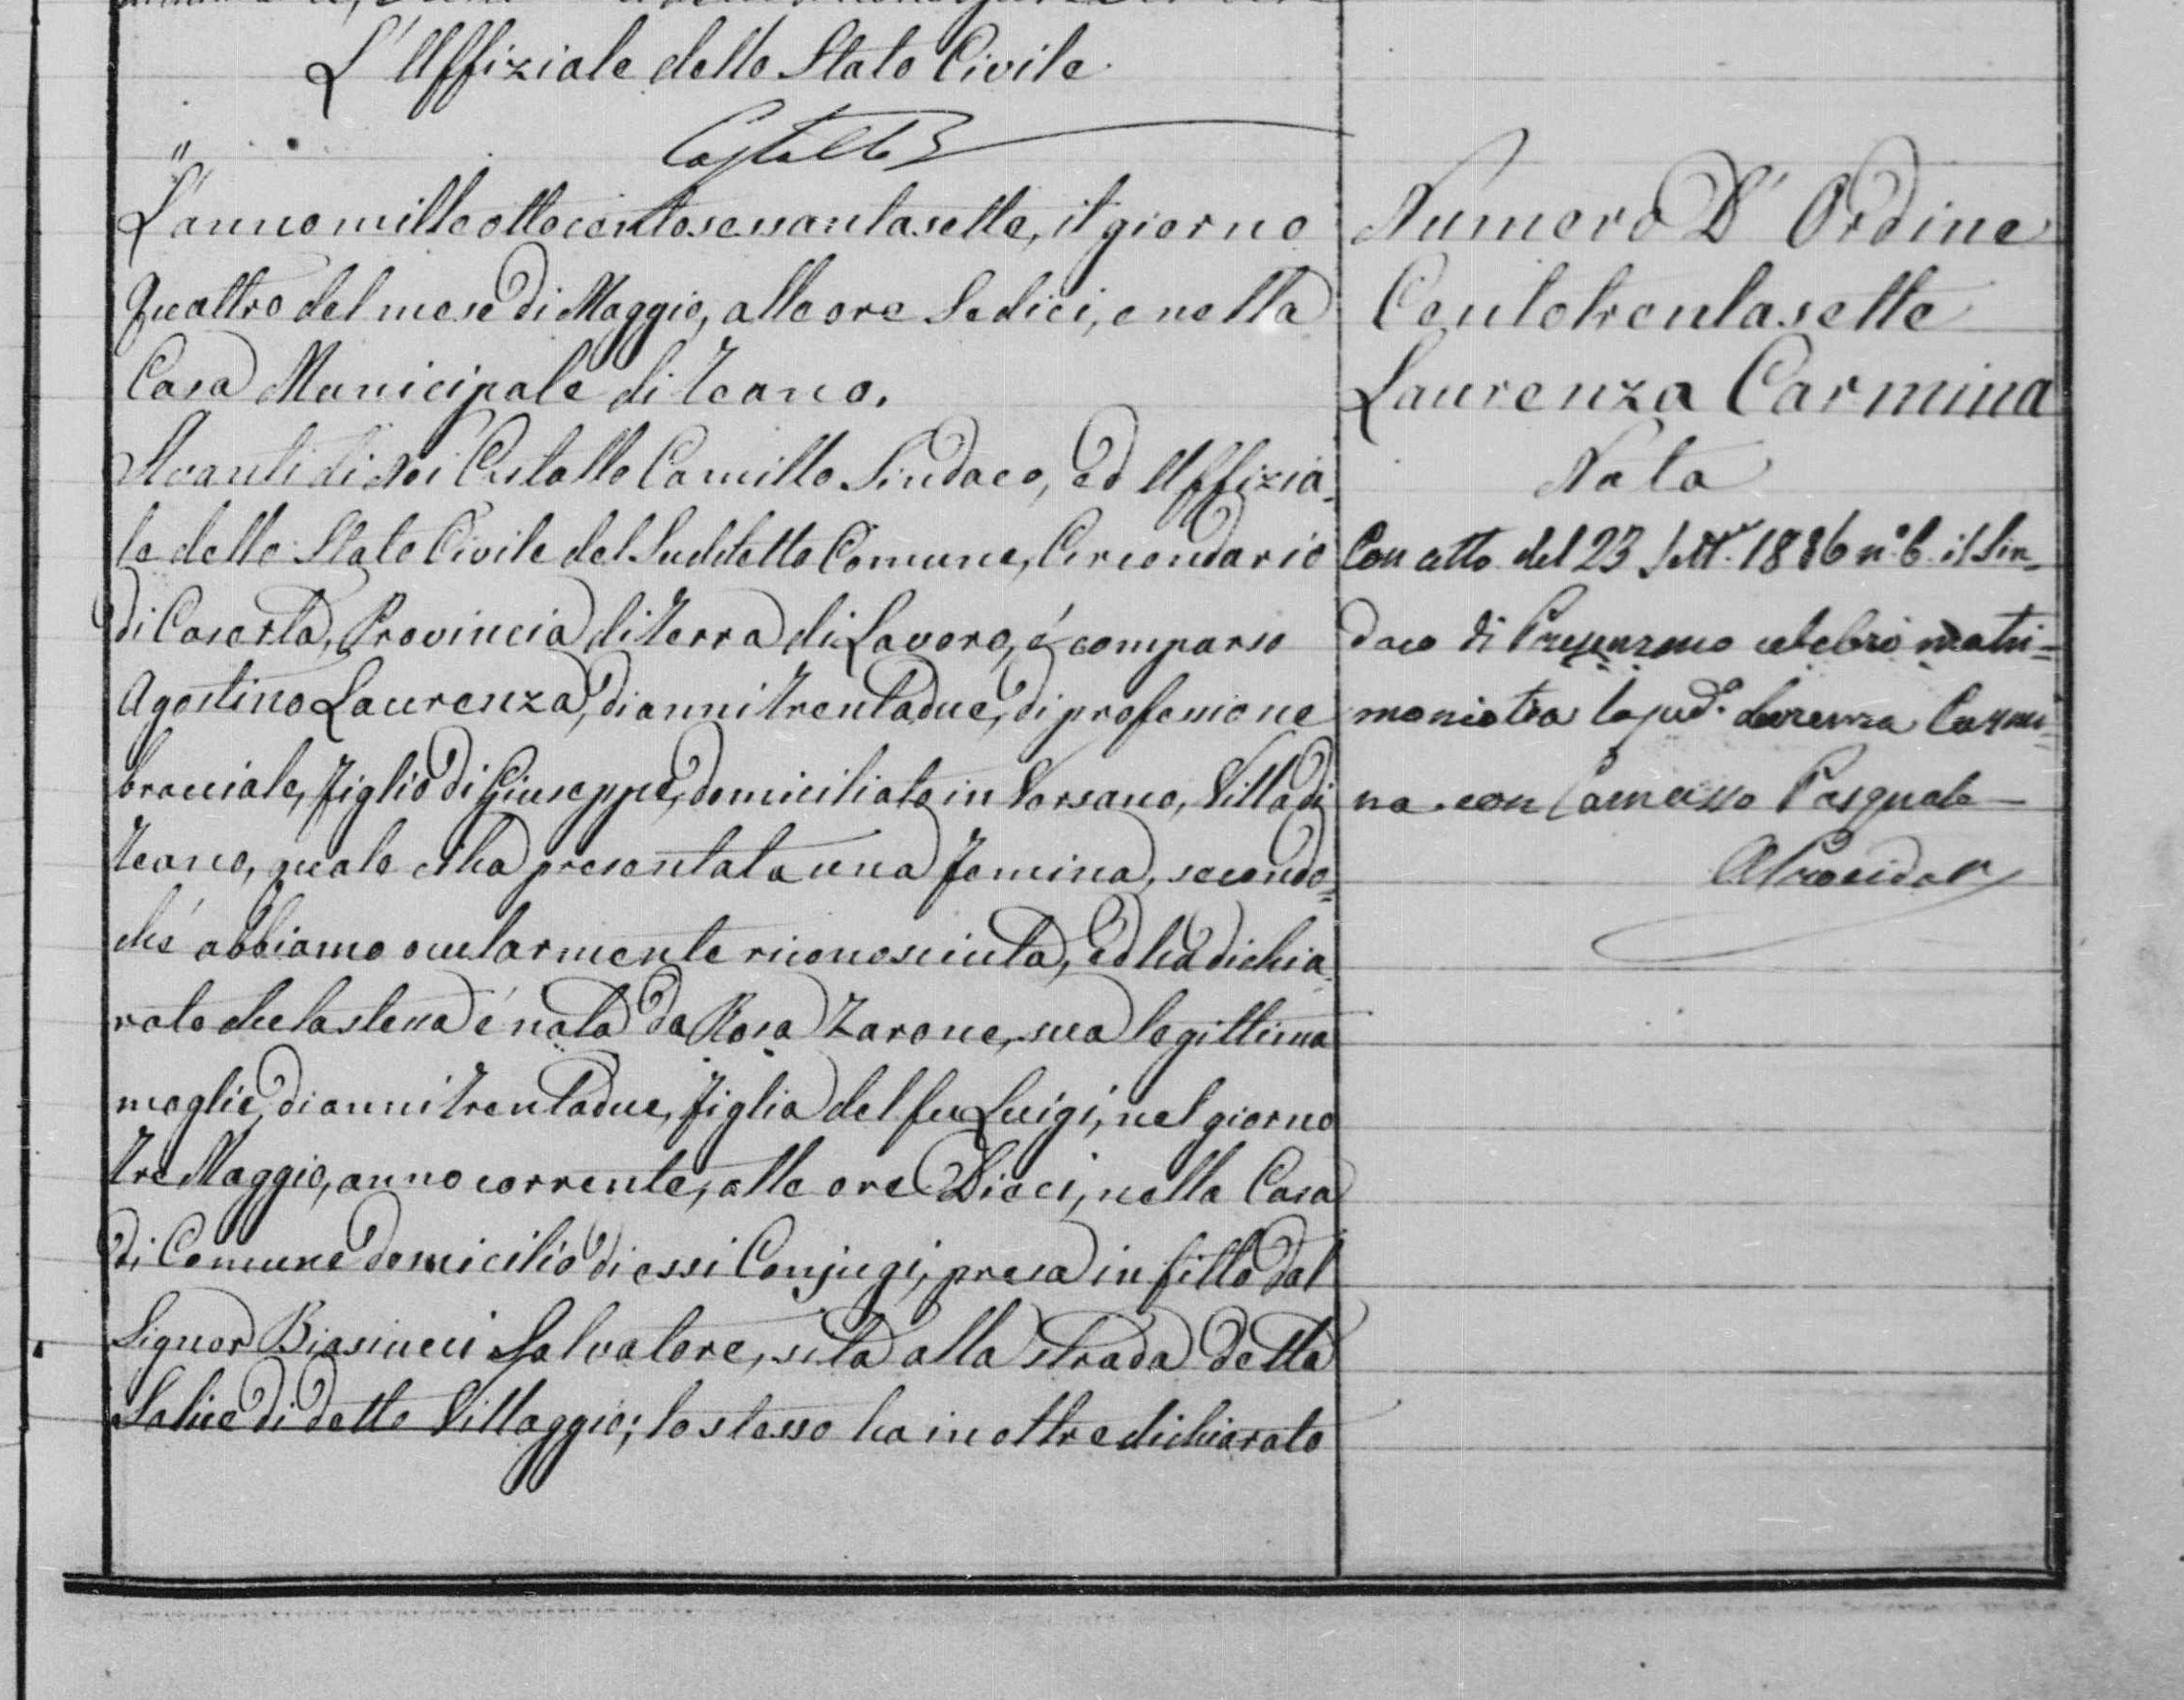 L'Uffiziale dello Stato Civile
L'anno milleottocentosessantasette, il giorno
quattro del mese di Maggio, alle ore Sedici, e nella
Casa Municipale di Teano.
Avanti di noi Camillo Sindaco, ed Uffizia-
le dello Stato Civile del Suddetto Comune, Circondario
di Caserta, Provincia di Terra di Lavoro, é comparso
Agostino Laurenza, di anni trentadue, di professione
bracciale, figlio di Giuseppe, domiciliato in Versano, Villa di
Teano, quale ci ha presentata una femina, secondo=
ché abbiamo ocularmente riconosciuta, ed ha dichia-
rato che la stessa é nata da Rosa Zarone, sua legittima
moglie, di anni trentadue, figlia del fu Luigi, nel giorno
tre Maggio, anno corrente, alle ore Dieci, nella Casa
di Comune domicilio di essi Conjugi, presa in fitto dal
Signor Biasiucci Salvatore, sita alla strada detta
Salice di detto Villaggio; lo stesso ha inoltre dichiarato
Numero D' Ordine
Centotrentasette
Laurenza Carmina
Nata
Con atto del 23 1886 n° 6 il Sin-
daco di Presenzano celebrò matri=
monio tra la pred.ª Laurenza Carmi=
na con Pasquale